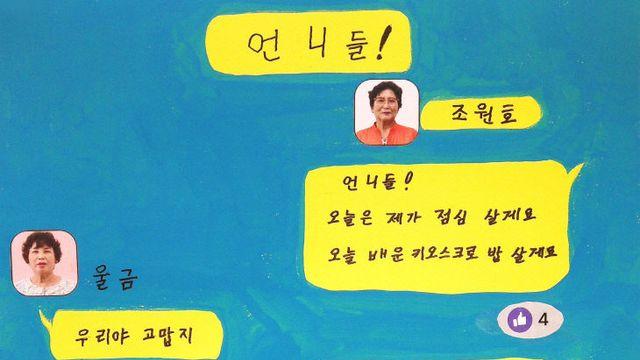 언니들!
조원호
언니들!
오늘은 제가 점심 살게요
오늘 배운 키오스크로 밥 살게요
4
울금
우리야 고맙지